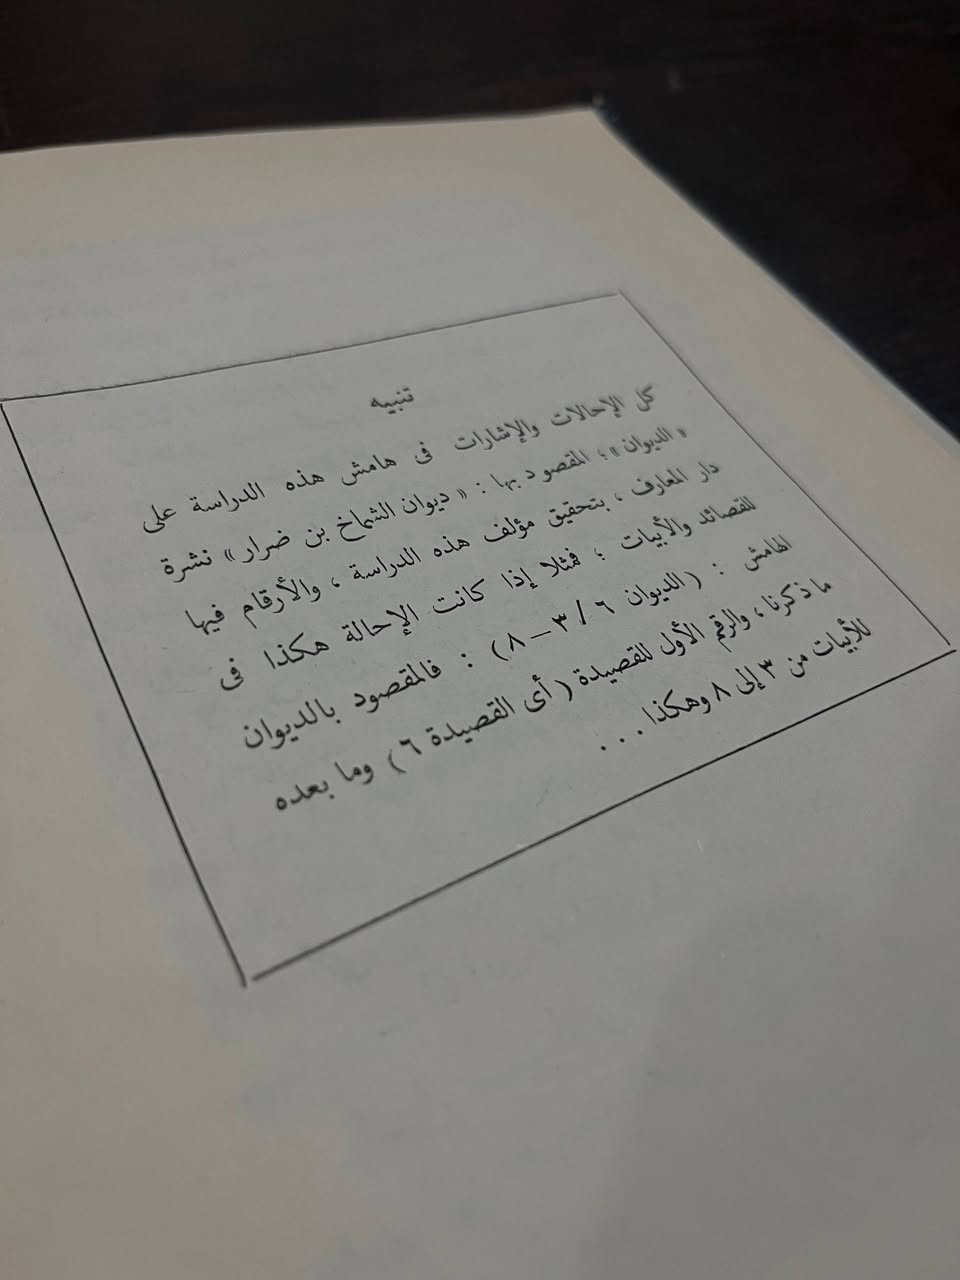 تنبيه
كل الإحالات والإشارات فى هامش هذه الدراسة على
« الديوان » ؛ المقصود بها : « ديوان الشماخ بن ضرار » نشرة
دار المعارف ، بتحقيق مؤلف هذه الدراسة ، والأرقام فيها
للقصائد والأبيات ؛ فمثلا إذا كانت الإحالة هكذا فى
الهامش : ( الديوان ٦ / ٣ – ٨ ) : فالمقصود بالديوان
ما ذكرنا ، والرقم الأول للقصيدة ( أى القصيدة ٦ ) وما بعده
للأبيات من ٣ إلى ٨ وهكذا . . .